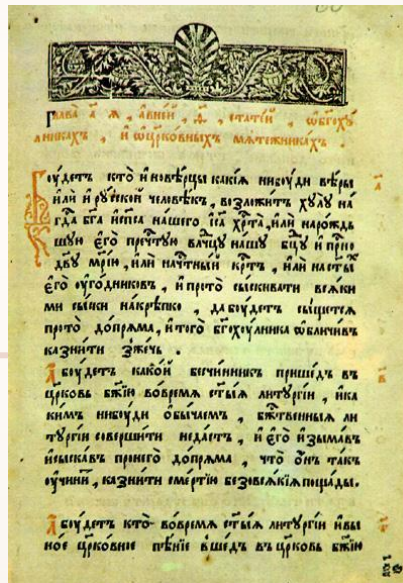 Глава̀ а҃ я , а҆вне́й , ѳ҃ , статі́й , ѡ҆бг҃оху́
лникахъ , и҆ ѡ҆церко́вныхъ мѧте́жникахъ .
Боу́детъ кто̀ и҆нові́рцы какі́ѧ нибоу́ди вѣ́ры
и҆лѝ и҆ рꙋ́сской человѣ́къ , возложи́тъ хꙋлꙋ̀ на́
гд҇а бг҃а и҆ сп҃са на́шего і҆с҃а хр҇та̀ , и҆лѝ наро́ждь
шꙋю є҆го̀ пречⷭ҇тꙋю влⷣчцꙋ нашꙋ бцⷣꙋ и҆ прⷭ҇но
дв҃ꙋ мр҃і́ю , и҆лѝ на чⷭ҇тны́й крⷭ҇тъ , и҆лѝ на ст҃ы́хъ
є҆го̀ оу҆го́дниковъ , и҆ про то̀ сы́скивати всѧ́ки
ми сы́ски накрѣ́пко , да боу́детъ сы́щетсѧ
про то̀ до́прѧма , и҆ того̀ бг҃охоу́лника ѡ҆бличи́въ
казни́ти зже́чь .
А҆ боу́детъ како́й безчи́нникъ прише́дъ въ
це́рковь бж҃ію во времѧ ст҃ы́ѧ литꙋргі́и , и҆ ка
ки́мъ нибоу́ди ѻ҆бы́чаемъ , бж҇твенныѧ ли
тꙋргі́и соверши́ти неда́стъ , и҆ є҆го̀ и҆зыма́въ
и҆ сыска́въ про него̀ до́прѧма , что̀ ѻ҆́нъ та́къ
оу҆чини́тъ , казни́ти сме́ртїю безо всѧ́кїѧ поща́ды .
А҆ боу́детъ кто̀ во времѧ ст҃ы́ѧ литꙋргі́и и҆ въ и
но́е церко́вное пѣ́нїе вше́дъ въ це́рковь бж҃їю